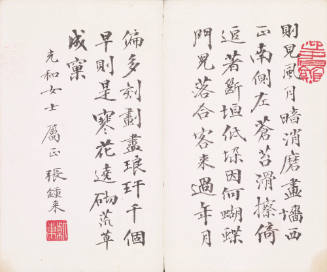 則見風月暗消磨畫墻西
正南側左蒼苔滑擦倚
逗著斷垣低垛因何蝴蝶
門兒落合客來過年月
偏多刻劃盡琅玕千個
早則是寒花遶砌荒草
成窠
充和女士屬正 張鍾來